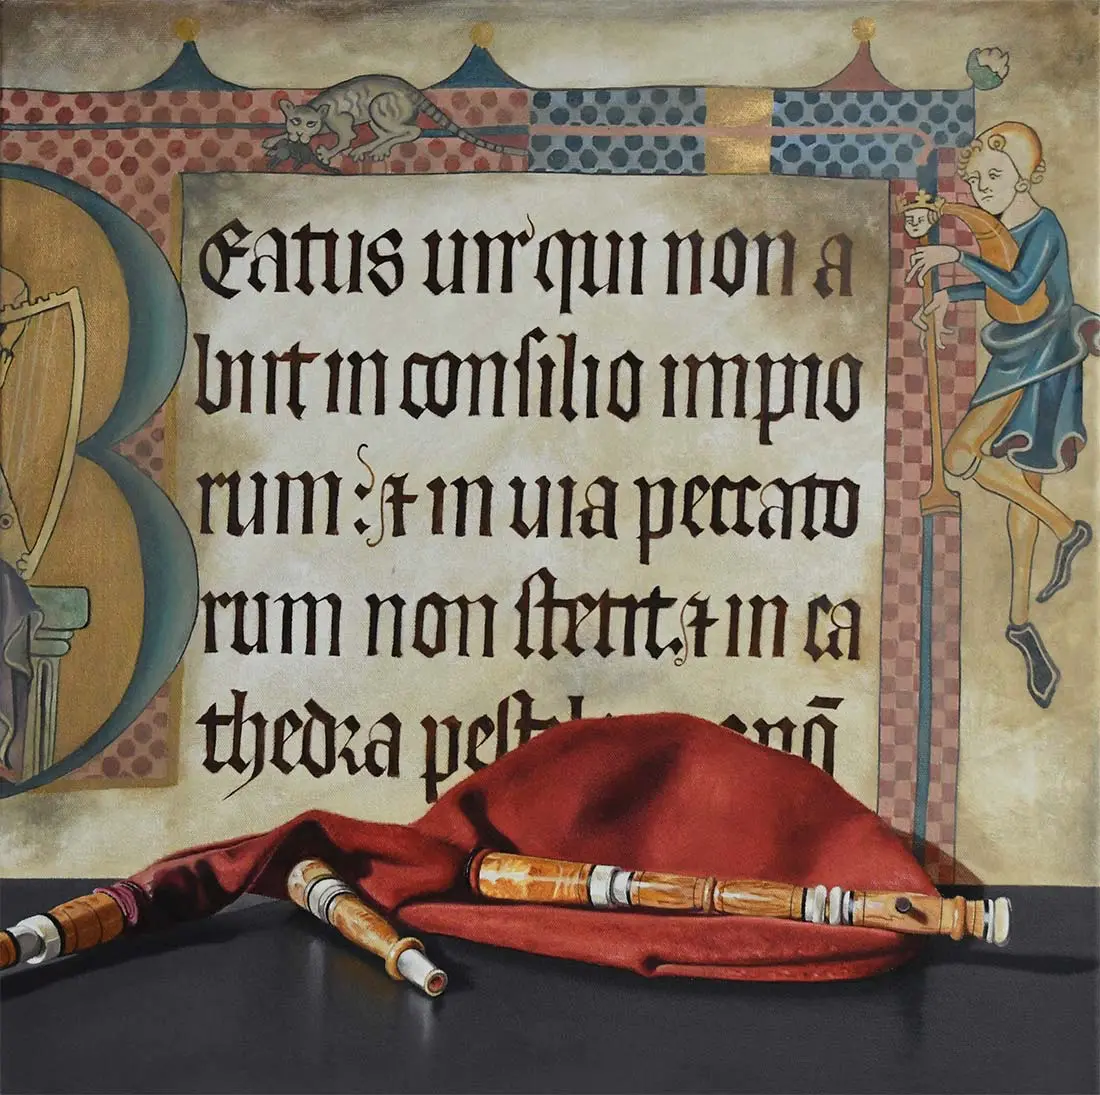 BEatus uir qui non a
biit in consilio impio
rum : ⁊ in uia peccato
rum non stetit. ⁊ in ca
thedra